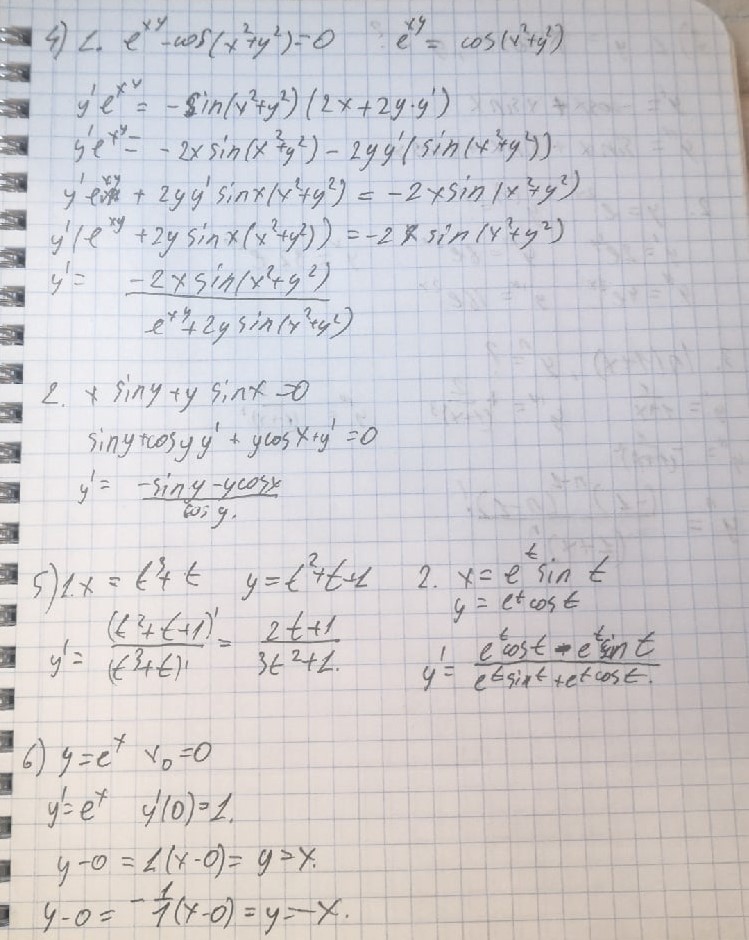 4) 1. e^{xy} - cos(x²+y²) = 0 e^{xy} = cos(x²+y²)
y'e^{xy} = -sin(x²+y²)(2x+2y·y')
y'e^{xy} = -2x sin(x²+y²) - 2yy'(sin(x²+y²))
y'e^{xy} + 2yy' sinx(x²+y²) = -2x sin(x²+y²)
y'(e^{xy} + 2y sinx(x²+y²)) = -2x sin(x²+y²)
y' = \frac{-2x sin(x²+y²)}{e^{xy}+2y sin(x²+y²)}
2. x siny + y sinx = 0
siny + cosy y' + y cosx + y' = 0
y' = \frac{-siny - ycosx}{cosy.}
5) 1. x = t³+t y = t²+t+1 2. x = e^t sin t
y = e^t cos t
y' = \frac{(t²+t+1)'}{(t³+t)'} = \frac{2t+1}{3t²+1.} y' = \frac{e^t cost - e^t sin t}{e^t sint + e^t cost.}
6) y = e^x x₀ = 0
y' = e^x y'(0) = 1.
y-0 = 1(x-0) = y = x.
y-0 = -\frac{1}{1}(x-0) = y = -x.